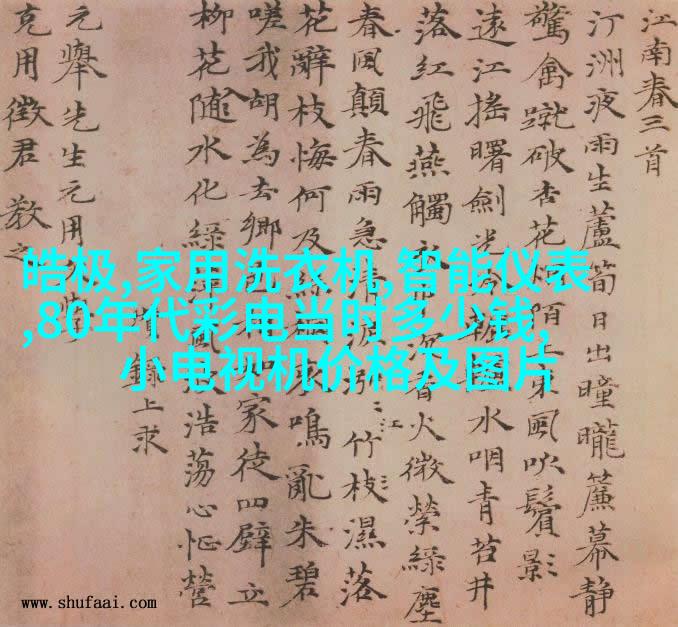 江南春三首
汀洲夜雨生蘆筍日出曈曨簾幕靜
驚禽蹴破杏花煙陌上東風吹鬢影
遠江搖曙劍光水咽青苔井
落紅飛燕觸衣沉香火微縈綠塵
春風顛春雨急清淚泓泓江竹枝濕落
花辭枝悔何及哀鳴亂朱碧
嗟我胡為去鄉如家徒四壁立
柳花隨水化綠風浩蕩心怔營
錄上求
元舉先生元用
克用徵君教之
皓极,家用洗衣机,智能仪表
,80年代彩电当时多少钱,
小电视机价格及图片
www.shufaai.com